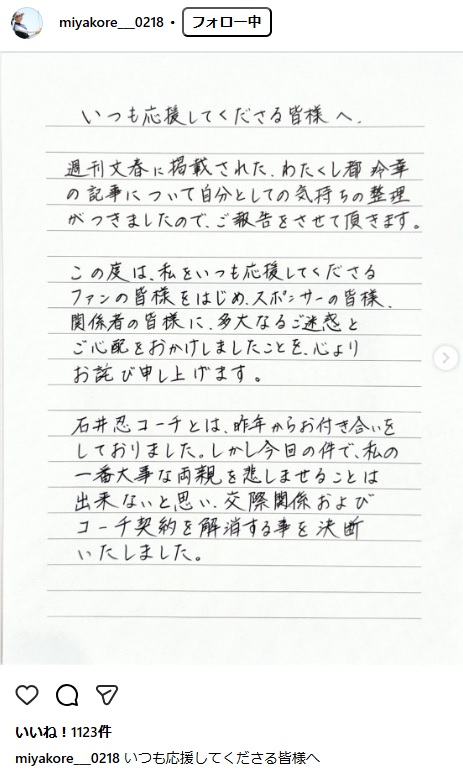 miyakore___0218 • フォロー中
いつも応援してくださる皆様へ.
週刊文春に掲載された、わたくし都 玲華
の記事について自分としての気持ちの整理
がつきましたので、ご報告をさせて頂きます。
この度は、私をいつも応援してくださる
ファンの皆様をはじめ、スポンサーの皆様、
関係者の皆様に、多大なるご迷惑と
ご心配をおかけしましたことを、心より
お詫び申し上げます。
石井忍コーチとは、昨年からお付き合いを
しておりました。しかし今回の件で、私の
一番大事な両親を悲しませることは
出来ないと思い、交際関係および
コーチ契約を解消する事を決断
いたしました。
いいね！1123件
miyakore___0218 いつも応援してくださる皆様へ